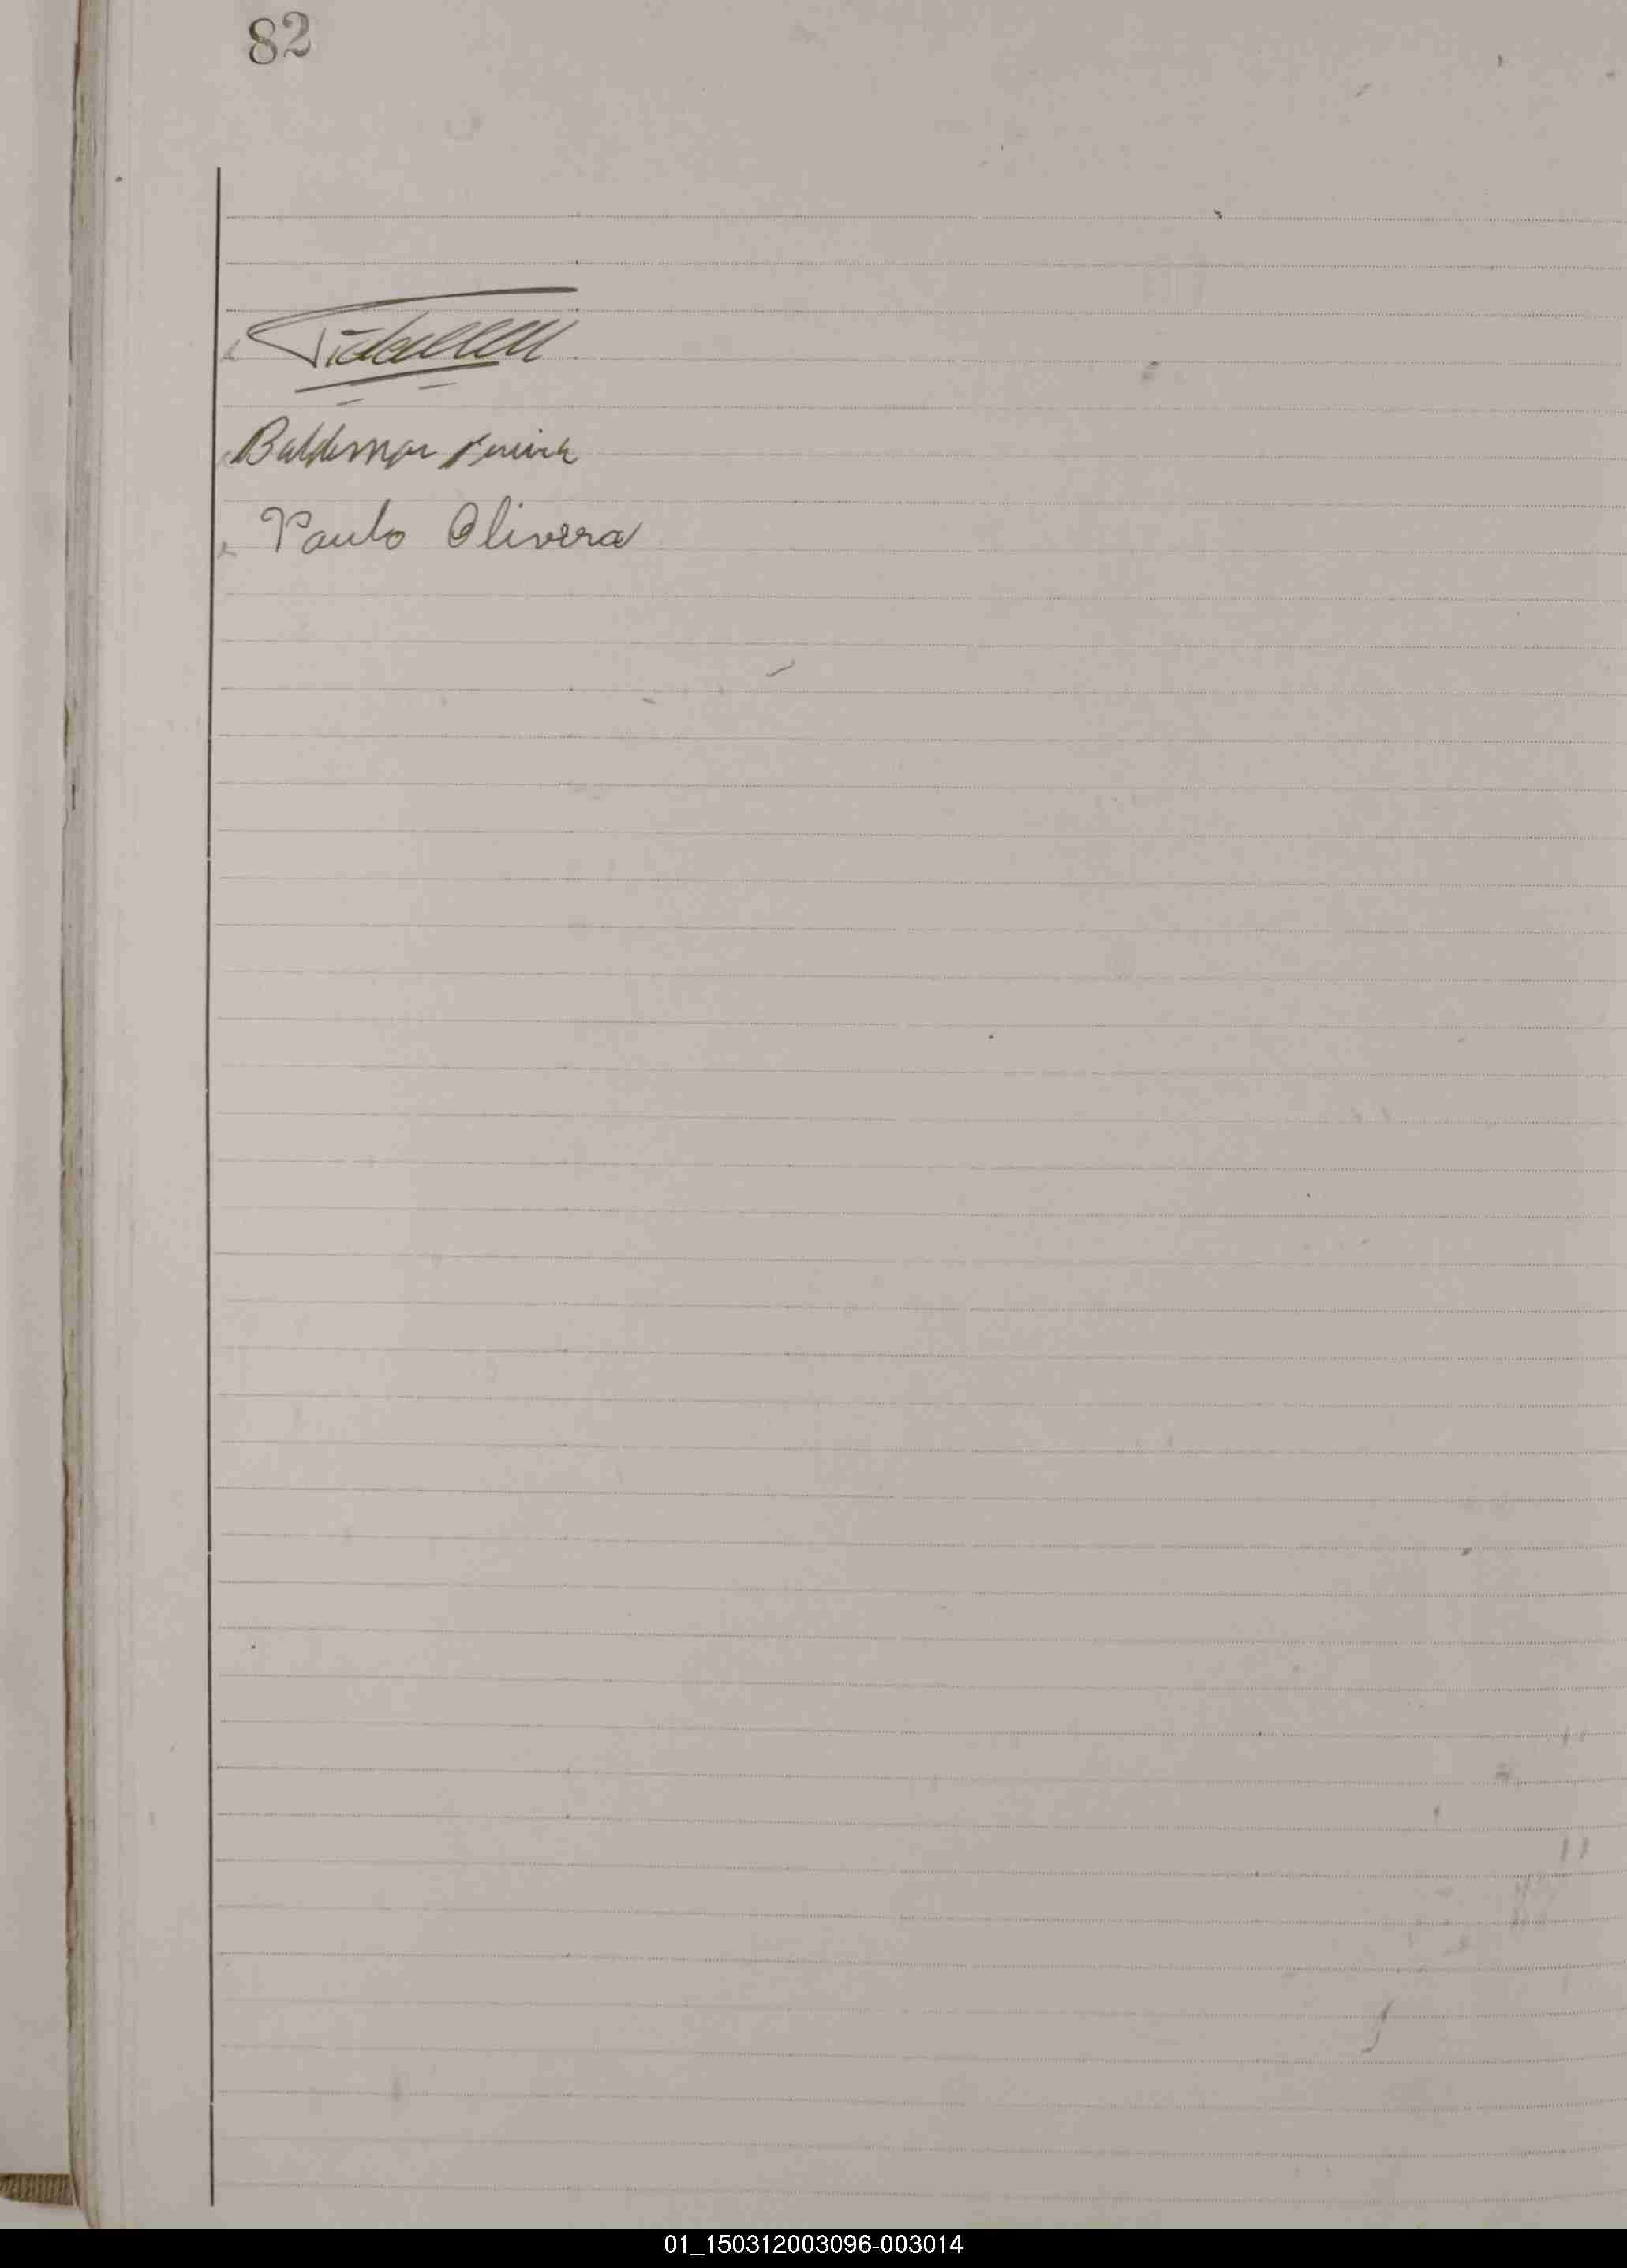 82
Baldemar
Paulo Olivera
01_150312003096-003014